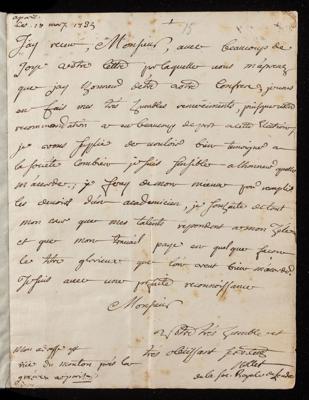 J'ay recu, Monsieur, avec beaucoup de
Joye votre lettre par laquelle vous m'aprenez
que j'ay l'honneur detre votre confrere, je vous
en fais mes très humbles remerciments,
recommandation a eu beaucoup de part a cette Election,
je vous suplie de vouloir bien temoigner a
la societé combien je suis sensible a l'honneur quelle
m'accorde, je feray de mon mieux pour remplir
les devoirs d'un academicien, je souhaite de tout
mon cœur que mes talents repondent a mon Zele
et que mon travail paye en quelque facon
le titre glorieux que l'on veut bien m'accorder
Je suis avec une parfaite reconnoissance
Monsieur
Votre très humble et
très obeissant serviteur
de la Soc. Royale de Londres
Mon adresse est
rue du mouton près la
greve a paris